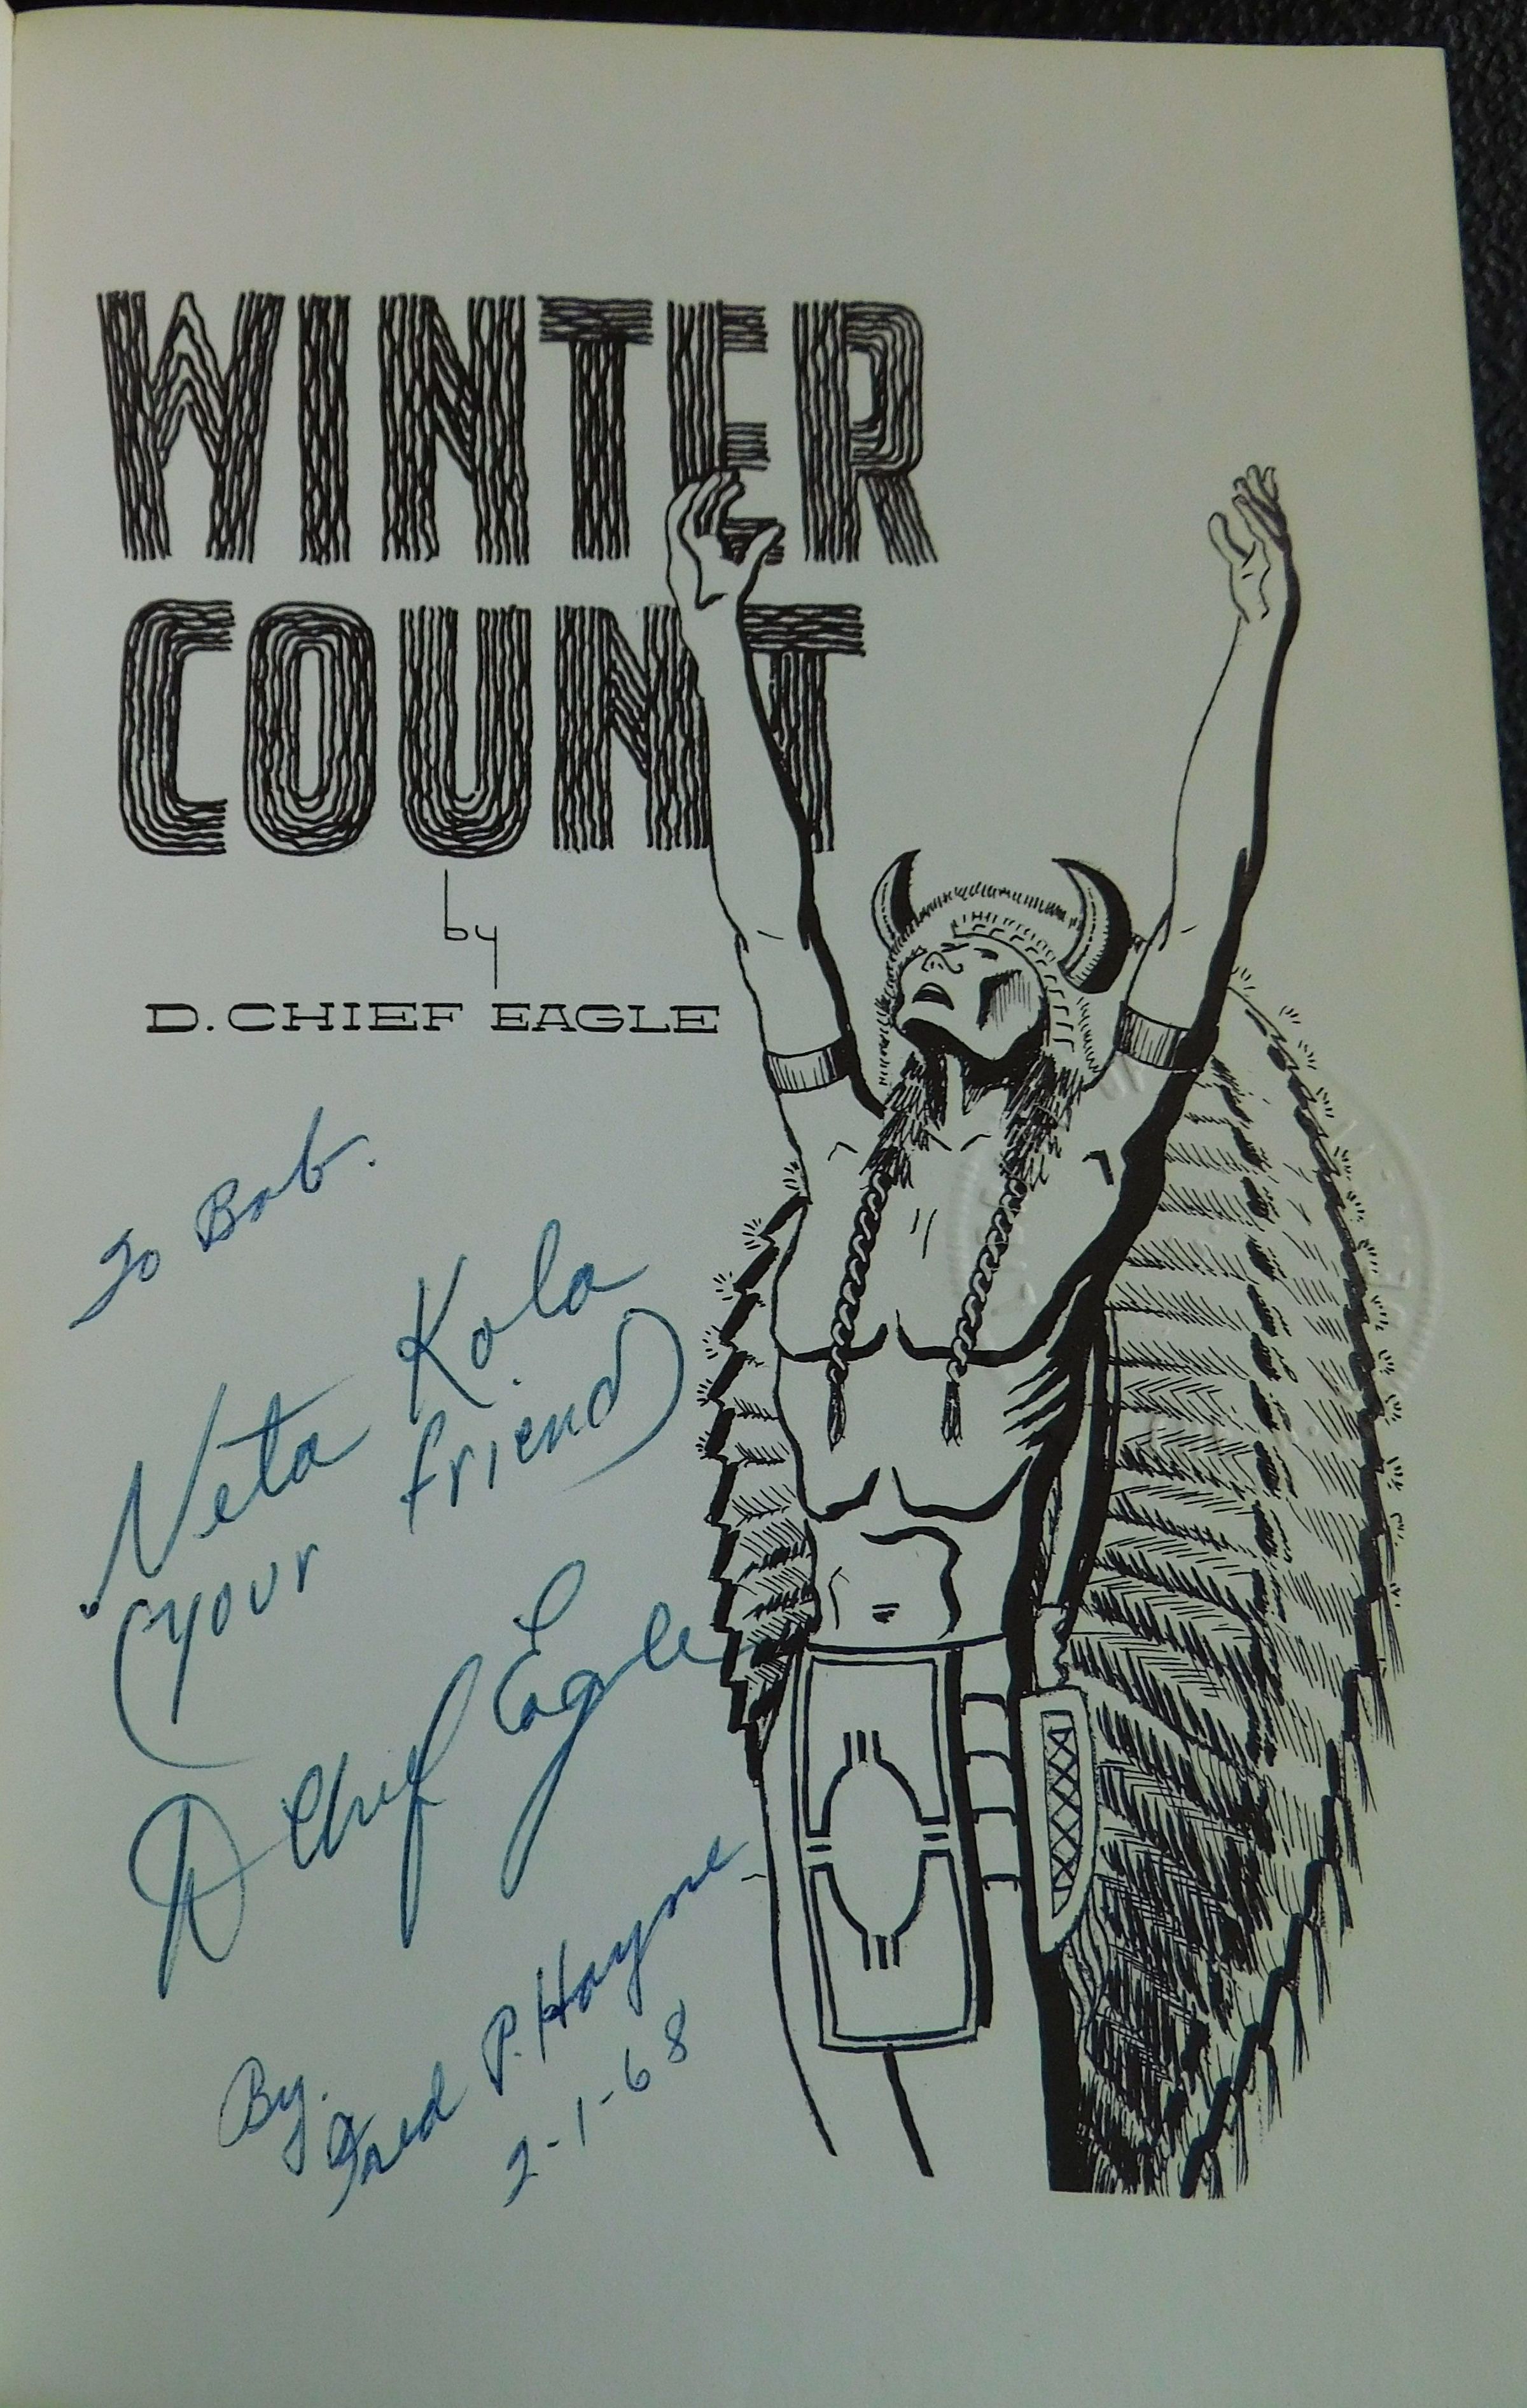 WINTER
COUNT
by
D. CHIEF EAGLE
To Bob.
Neta Kola
(your friend)
D Chief Eagle
By. Fred P. Hayne
2-1-68